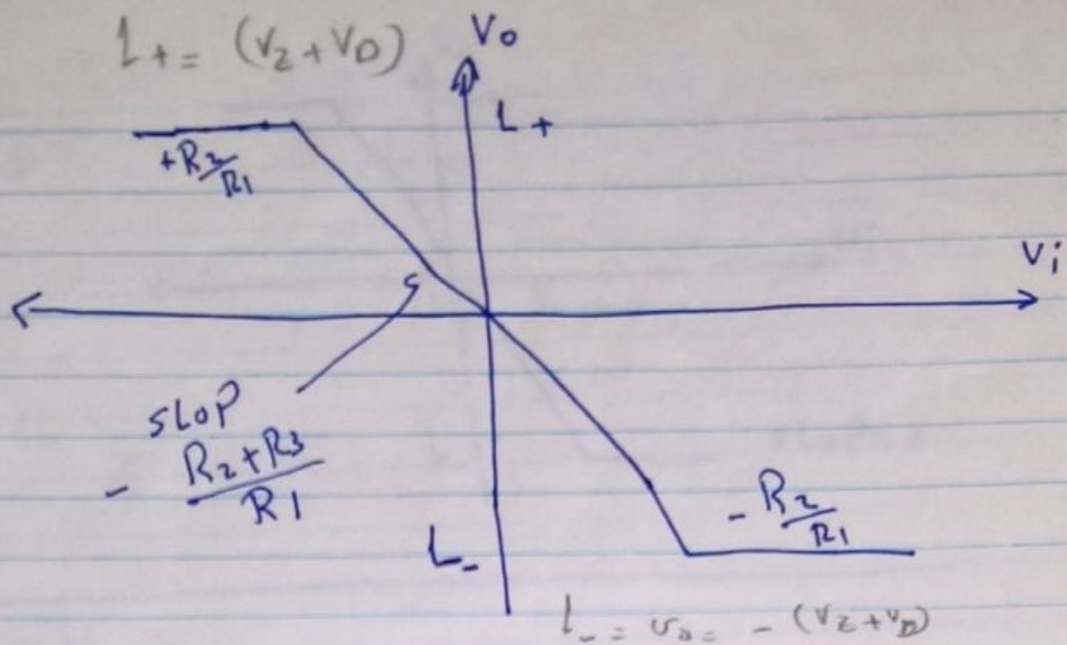 L+ = (VZ + VD)
Vo
L+
+R2/R1
Vi
SLOP
- R2+R3/R1
- R2/R1
L-
L- = vo = - (VZ + VD)